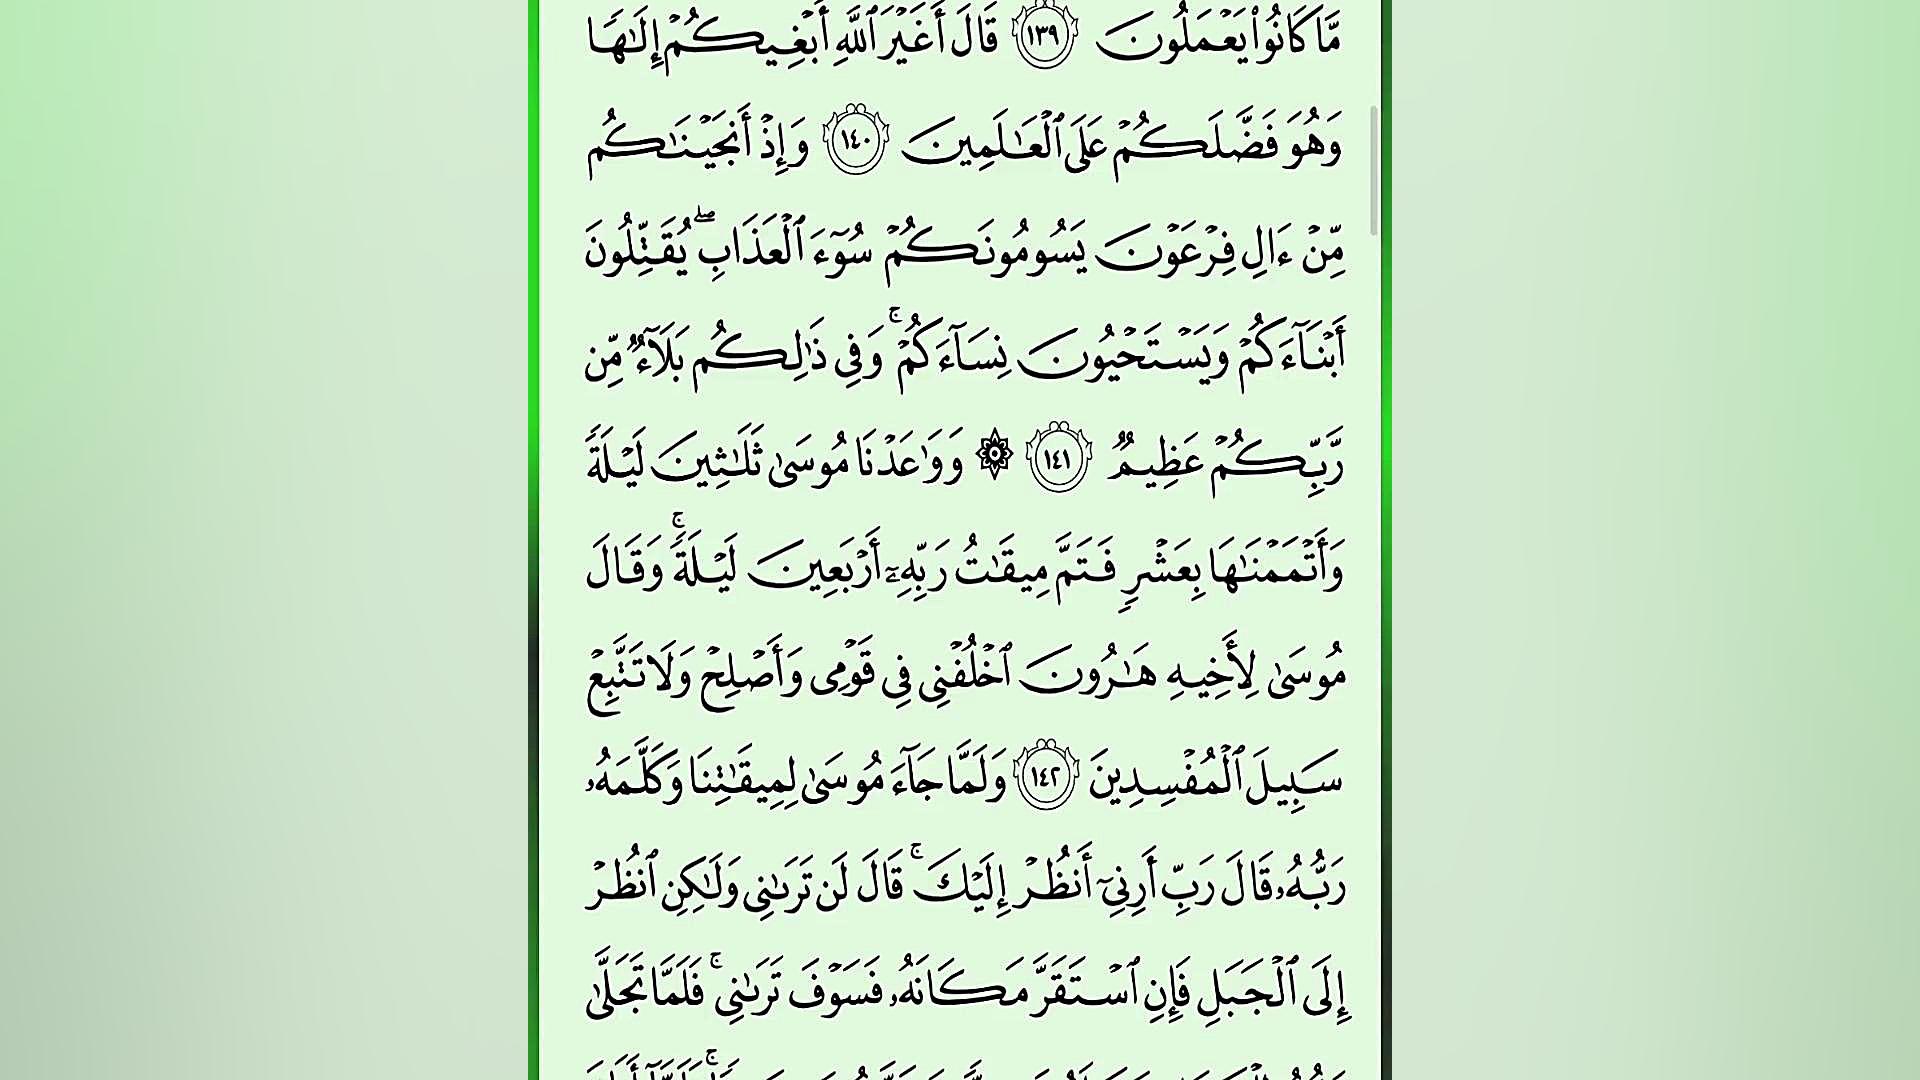 مَّا كَانُوا۟ يَعْمَلُونَ ١٣٩ قَالَ أَغَيْرَ ٱللَّهِ أَبْغِيكُمْ إِلَـٰهًا
وَهُوَ فَضَّلَكُمْ عَلَى ٱلْعَـٰلَمِينَ ١٤٠ وَإِذْ أَنجَيْنَـٰكُم
مِّنْ ءَالِ فِرْعَوْنَ يَسُومُونَكُمْ سُوٓءَ ٱلْعَذَابِ ۖ يُقَتِّلُونَ
أَبْنَآءَكُمْ وَيَسْتَحْيُونَ نِسَآءَكُمْ ۚ وَفِى ذَٰلِكُم بَلَآءٌ مِّن
رَّبِّكُمْ عَظِيمٌ ١٤١ ۞ وَوَٰعَدْنَا مُوسَىٰ ثَلَـٰثِينَ لَيْلَةً
وَأَتْمَمْنَـٰهَا بِعَشْرٍ فَتَمَّ مِيقَـٰتُ رَبِّهِۦٓ أَرْبَعِينَ لَيْلَةً ۚ وَقَالَ
مُوسَىٰ لِأَخِيهِ هَـٰرُونَ ٱخْلُفْنِى فِى قَوْمِى وَأَصْلِحْ وَلَا تَتَّبِعْ
سَبِيلَ ٱلْمُفْسِدِينَ ١٤٢ وَلَمَّا جَآءَ مُوسَىٰ لِمِيقَـٰتِنَا وَكَلَّمَهُۥ
رَبُّهُۥ قَالَ رَبِّ أَرِنِىٓ أَنظُرْ إِلَيْكَ ۚ قَالَ لَن تَرَىٰنِى وَلَـٰكِنِ ٱنظُرْ
إِلَى ٱلْجَبَلِ فَإِنِ ٱسْتَقَرَّ مَكَانَهُۥ فَسَوْفَ تَرَىٰنِى ۚ فَلَمَّا تَجَلَّىٰ